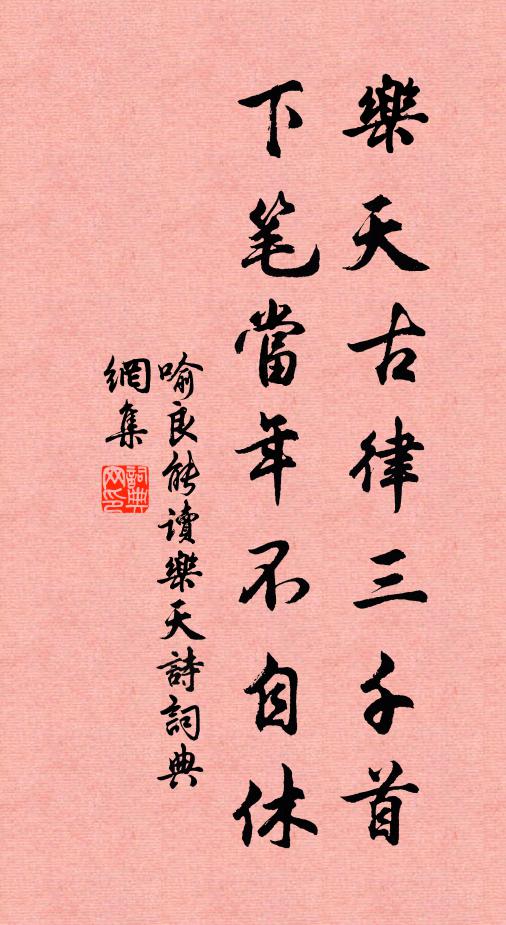 樂天古律三千首
下笔當年不自休
喻良能讀樂天詩詞典
網集
詞典
网印